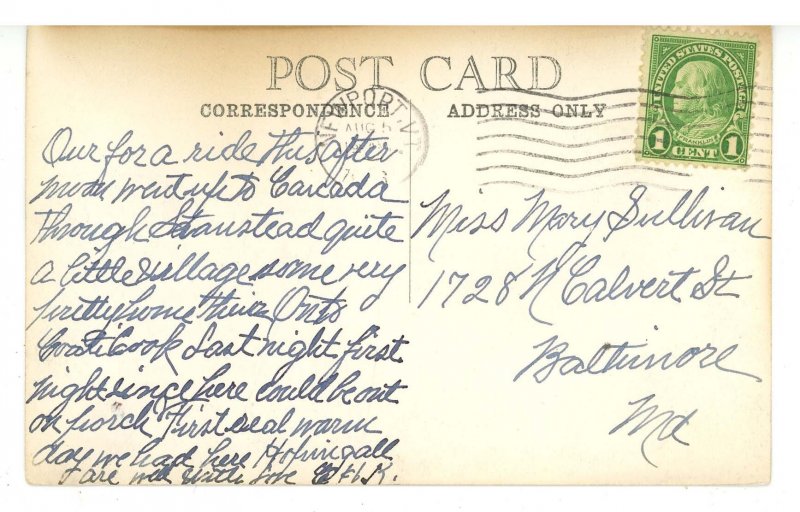 POST CARD
CORRESPONDENCE
ADDRESS ONLY
NEWPORT, VT.
AUG 5
UNITED STATES POSTAGE
FRANKLIN
1 CENT 1
Our for a ride this after
noon went up to Canada
through Stanstead quite
a little village some very
pretty home there Onto
Coaticook Last night first
night since here could be out
on porch First real warm
day we had here Hoping all
are well with love
Miss Mary Sullivan
1728 N Calvert St
Baltimore
Md